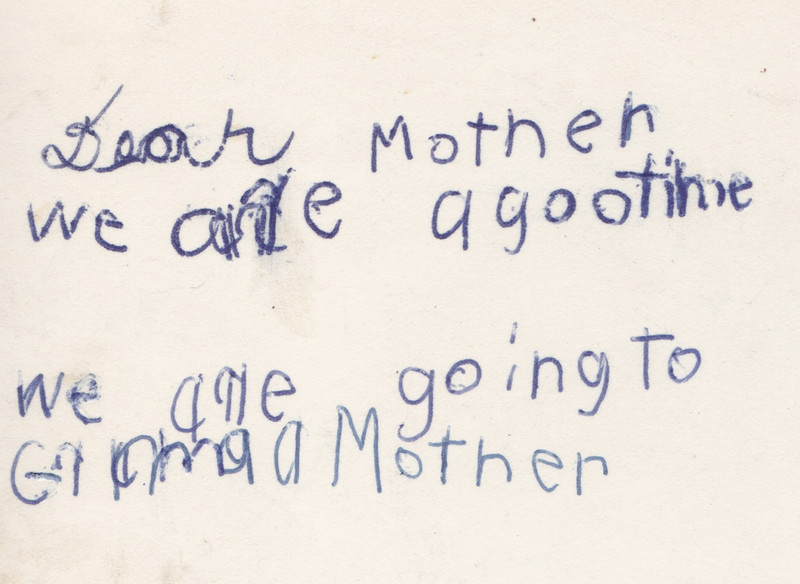 Dear Mother
we are a gootime
we are going to
Mother